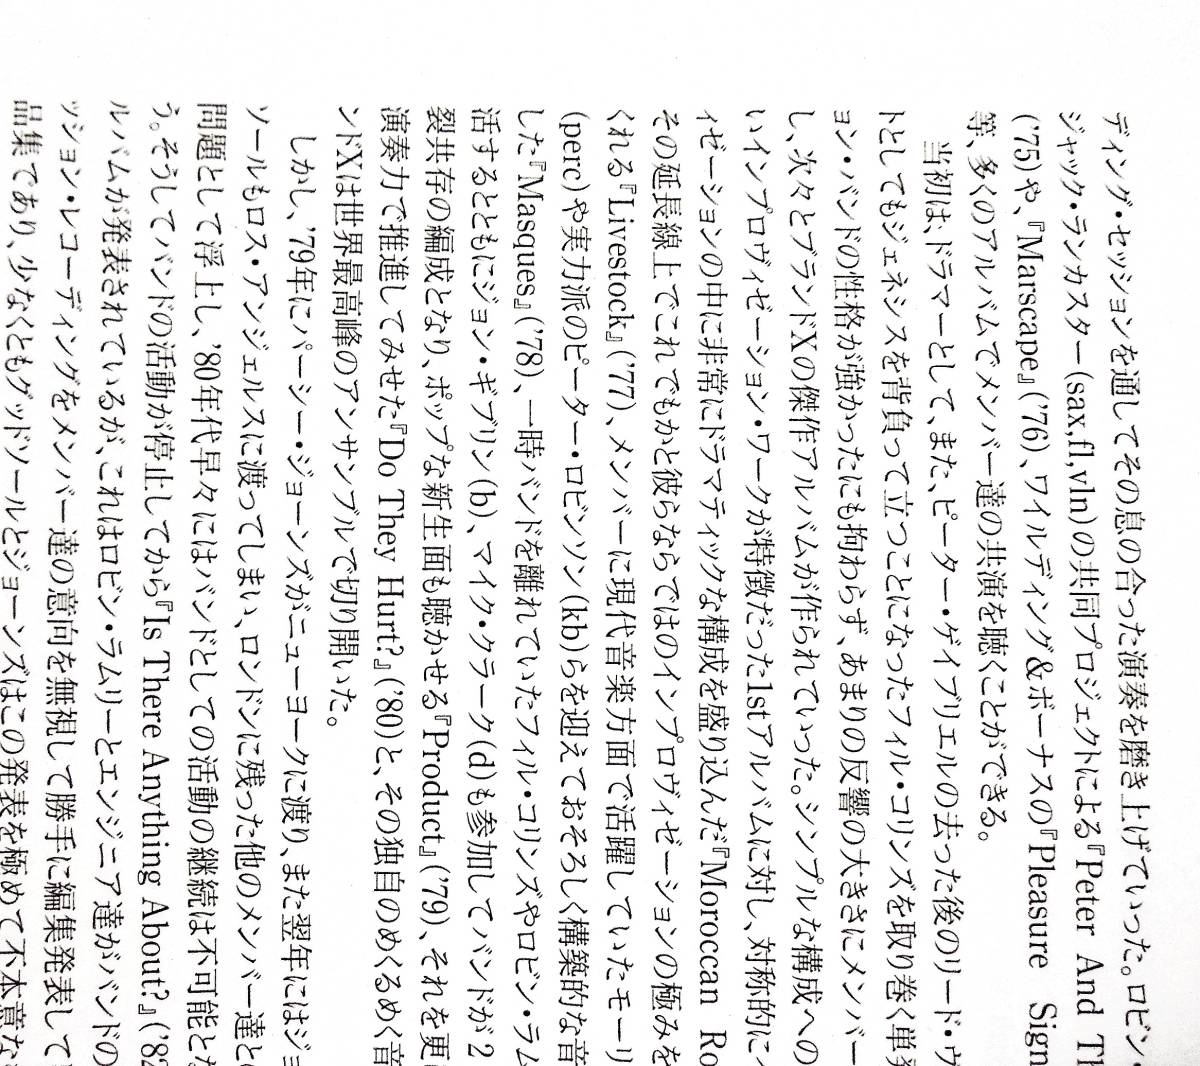 ディング・セッションを通してその息の合った演奏を磨き上げていった。ロビン・
ジャック・ランカスター(sax,fl,vln)の共同プロジェクトによる『Peter And Th
('75)や、『Marscape』('76)、ワイルディング＆ボーナスの『Pleasure Sign
等、多くのアルバムでメンバー達の共演を聴くことができる。
当初は、ドラマーとして、また、ピーター・ゲイブリエルの去った後のリード・ヴ
トとしてもジェネシスを背負って立つことになったフィル・コリンズを取り巻く単発
ョン・バンドの性格が強かったにも拘わらず、あまりの反響の大きさにメンバー
し、次々とブランドXの傑作アルバムが作られていった。シンプルな構成への
いインプロヴィゼーション・ワークが特徴だった1stアルバムに対し、対称的に
ィゼーションの中に非常にドラマティックな構成を盛り込んだ『Moroccan Ro
その延長線上でこれでもかと彼らならではのインプロヴィゼーションの極みを
くれる『Livestock』('77)、メンバーに現代音楽方面で活躍していたモーリ
(perc)や実力派のピーター・ロビンソン(kb)らを迎えておそろしく構築的な音
した『Masques』('78)、一時バンドを離れていたフィル・コリンズやロビン・ラム
活するとともにジョン・ギブリン(b)、マイク・クラーク(d)も参加してバンドが2
裂共存の編成となり、ポップな新生面も聴かせる『Product』('79)、それを更
演奏力で推進してみせた『Do They Hurt?』('80)と、その独自のめくるめく音
ンドXは世界最高峰のアンサンブルで切り開いた。
しかし、'79年にパーシー・ジョーンズがニューヨークに渡り、また翌年にはジョ
ソールもロス・アンジェルスに渡ってしまい、ロンドンに残った他のメンバー達と
問題として浮上し、'80年代早々にはバンドとしての活動の継続は不可能とな
う。そうしてバンドの活動が停止してから『Is There Anything About?』('82
ルバムが発表されているが、これはロビン・ラムリーとエンジニア達がバンドの
ッション・レコーディングをメンバー達の意向を無視して勝手に編集発表して
品集であり、少なくともグッドソールとジョーンズはこの発表を極めて不本意な